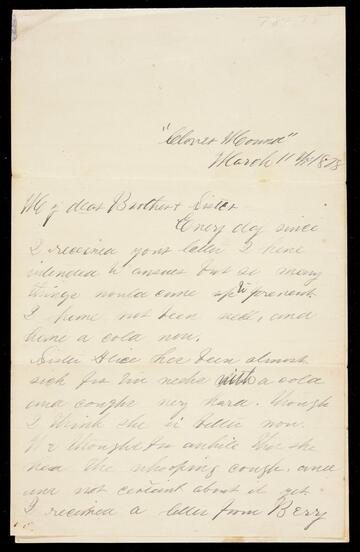 "Clover Mound"
March 11th 1878
My dear Brother & Sister
Every day since
I received your letter I have
intended to answer but so many
things would come up to prevent.
I have not been well, and
have a cold now.
Sister Alice has been almost
sick for two weeks with a cold
and coughs very hard. Though
I think she is better now.
We thought for awhile that she
had the whooping cough, and
are not certain about it yet.
I received a letter from Berry